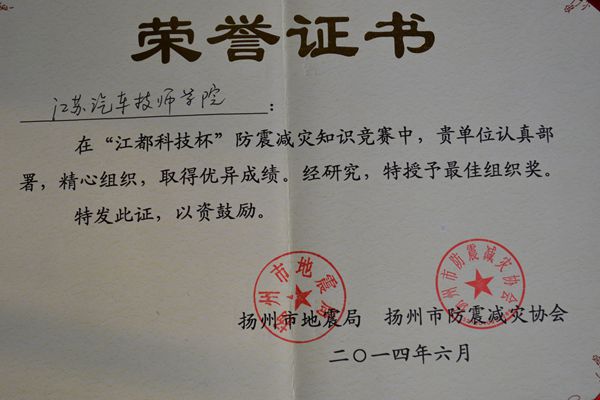 荣誉证书
江苏汽车技师学院：
在“江都科技杯”防震减灾知识竞赛中，贵单位认真部
署，精心组织，取得优异成绩。经研究，特授予最佳组织奖。
特发此证，以资鼓励。
扬州市地震局
扬州市防震减灾协会
扬州市地震局 扬州市防震减灾协会
二〇一四年六月